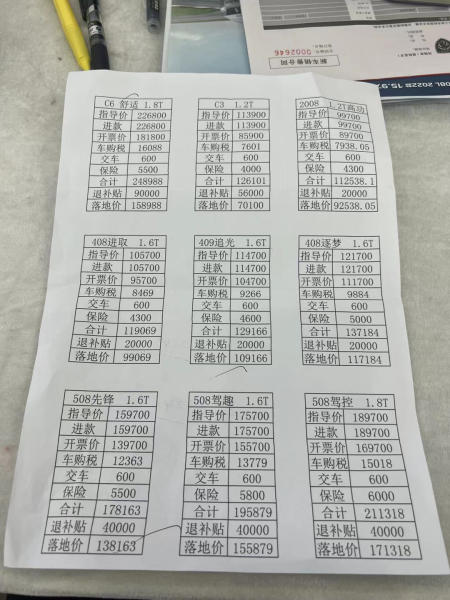 新车销售合同
0002646
08L 2022B 15.97
C6 舒适 1.8T
指导价 226800
进款 226800
开票价 181800
车购税 16088
交车 600
保险 5500
合计 248988
退补贴 90000
落地价 158988
C3 1.2T
指导价 113900
进款 113900
开票价 85900
车购税 7601
交车 600
保险 4000
合计 126101
退补贴 56000
落地价 70100
2008 1.2T高功
指导价 99700
进款 99700
开票价 89700
车购税 7938.05
交车 600
保险 4300
合计 112538.1
退补贴 20000
落地价 92538.05
408进取 1.6T
指导价 105700
进款 105700
开票价 95700
车购税 8469
交车 600
保险 4300
合计 119069
退补贴 20000
落地价 99069
409追光 1.6T
指导价 114700
进款 114700
开票价 104700
车购税 9266
交车 600
保险 4600
合计 129166
退补贴 20000
落地价 109166
408逐梦 1.6T
指导价 121700
进款 121700
开票价 111700
车购税 9884
交车 600
保险 5000
合计 137184
退补贴 20000
落地价 117184
508先锋 1.6T
指导价 159700
进款 159700
开票价 139700
车购税 12363
交车 600
保险 5500
合计 178163
退补贴 40000
落地价 138163
508驾趣 1.6T
指导价 175700
进款 175700
开票价 155700
车购税 13779
交车 600
保险 5800
合计 195879
退补贴 40000
落地价 155879
508驾控 1.8T
指导价 189700
进款 189700
开票价 169700
车购税 15018
交车 600
保险 6000
合计 211318
退补贴 40000
落地价 171318